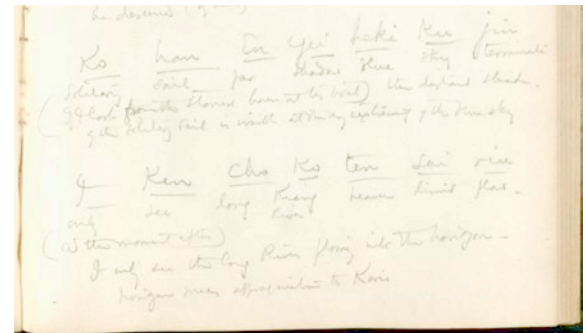 he descend
Ko han En Yei heki Ku jin
solitary sail far shadow blue sky terminate
look from the at his boat) the distant shadow
of the solitary sail is visible at the of the blue sky
Ken Cho Ko ten sai riu
only see long Kiang heaven limit flow.
River
(at the moment after)
I only see the long River flowing into the horizon —
horizon means approximation to Karis